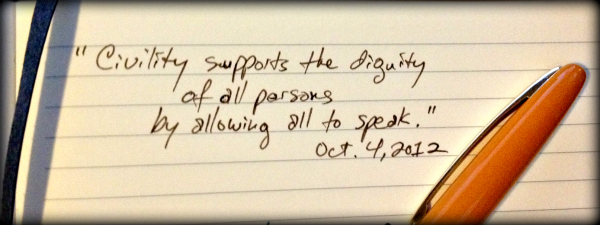 "Civility supports the dignity
of all persons
by allowing all to speak."
Oct. 4, 2012